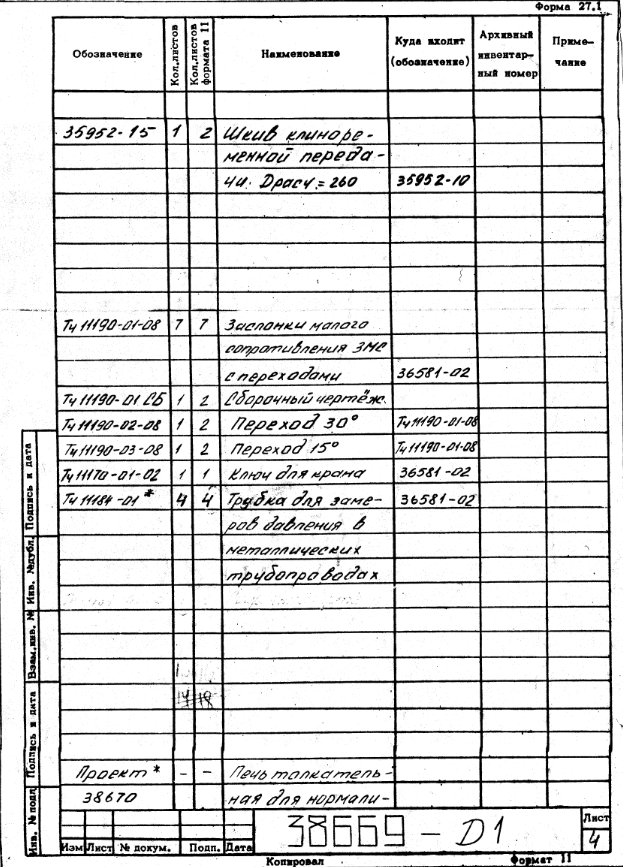 Форма 27.1
Обозначение Кол.листов Кол.листов формата 11 Наименование Куда входит (обозначение) Архивный инвентарный номер Примечание
35952-15 1 2 Шкив клиноре-
менной переда-
чи. Dрасч.= 260 35952-10
Тч 11190-01-08 7 7 Заслонки малого
сопротивления ЗМС
с переходами 36581-02
Тч 11190-01 СБ 1 2 Сборочный чертёж.
Тч 11190-02-08 1 2 Переход 30° Тч 11190-01-08
Тч 11190-03-08 1 2 Переход 15° Тч 11190-01-08
Тч 11170-01-02 1 1 Ключ для крана 36581-02
Тч 11184-01 * 4 4 Трубка для заме- 36581-02
ров давления в
металлических
трубопроводах
14 18
Проект * - - Печь толкатель-
38670 ная для нормали-
Инв. № подл Подпись и дата Взам.инв. № Инв. №дубл. Подпись и дата
38669 - D1
Лист
4
Изм Лист № докум. Подп. Дата
Копировал Формат 11